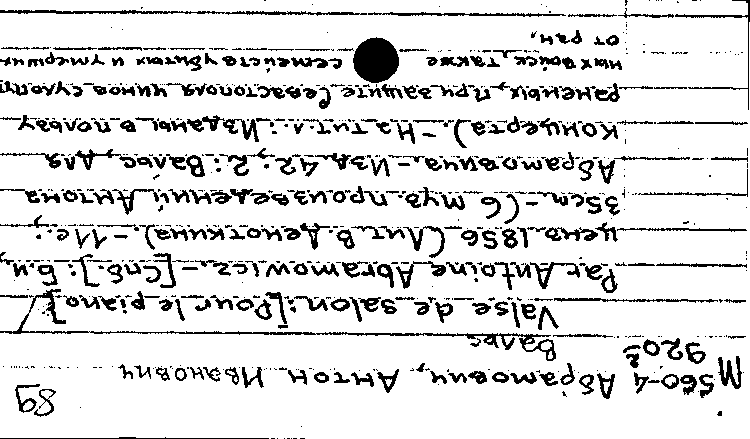 89
М 560-4 Абрамович, Антон Иванович
920²
Вальс
Valse de salon: [Pour le piano]
Par Antoine Abramowicz. - [Спб.]: Б.и.,
ценз. 1856 (Лит. В. Деноткина). - 11с.;
35см. - (6 муз. произведений Антона
Абрамовича. - Изд. 42; 2: Вальс, для
концерта). - На тит.л.: Изданы в пользу
раненых, при защите Севастополя чинов сухопут
ных войск, также семейств убитых и умерших
от ран.